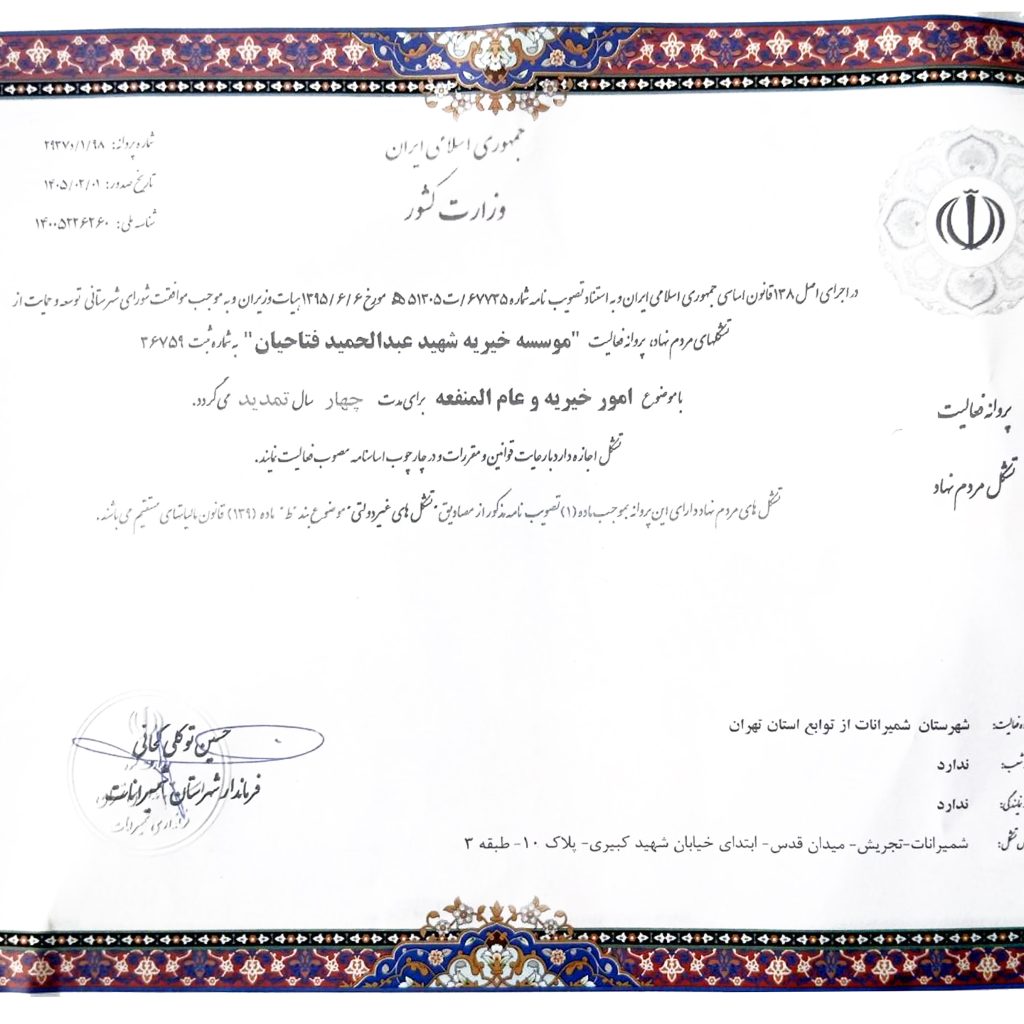 جمهوری اسلامی ایران
وزارت کشور
شماره پروانه: ۲۹۳۷۰/۱/۹۸
تاریخ صدور: ۱۴۰۵/۰۲/۰۱
شناسه ملی: ۱۴۰۰۵۲۲۶۲۶۰
پروانه فعالیت
تشکل مردم نهاد
در اجرای اصل ۱۳۸ قانون اساسی جمهوری اسلامی ایران و به استناد تصویب نامه شماره ۶۷۷۳۵/ت۵۱۳۰۵ﻫ مورخ ۱۳۹۵/۶/۶ هیات وزیران و به موجب موافقت شورای شهرستانی توسعه و حمایت از
تشکلهای مردم نهاد، پروانه فعالیت "موسسه خیریه شهید عبدالحمید فتاحیان" به شماره ثبت ۳۶۷۵۹
با موضوع امور خیریه و عام المنفعه برای مدت چهار سال تمدید می گردد.
تشکل اجازه دارد با رعایت قوانین و مقررات و در چارچوب اساسنامه مصوب فعالیت نمایند.
تشکل های مردم نهاد دارای این پروانه بموجب ماده (۱) تصویب نامه مذکور از مصادیق "تشکل های غیردولتی" موضوع بند "ط" ماده (۱۳۹) قانون مالیاتهای مستقیم می باشند.
شهرستان شمیرانات از توابع استان تهران
ندارد
ندارد
شمیرانات-تجریش- میدان قدس- ابتدای خیابان شهید کبیری- پلاک ۱۰- طبقه ۳
حسین توکلی کجانی
فرماندار شهرستان شمیرانات